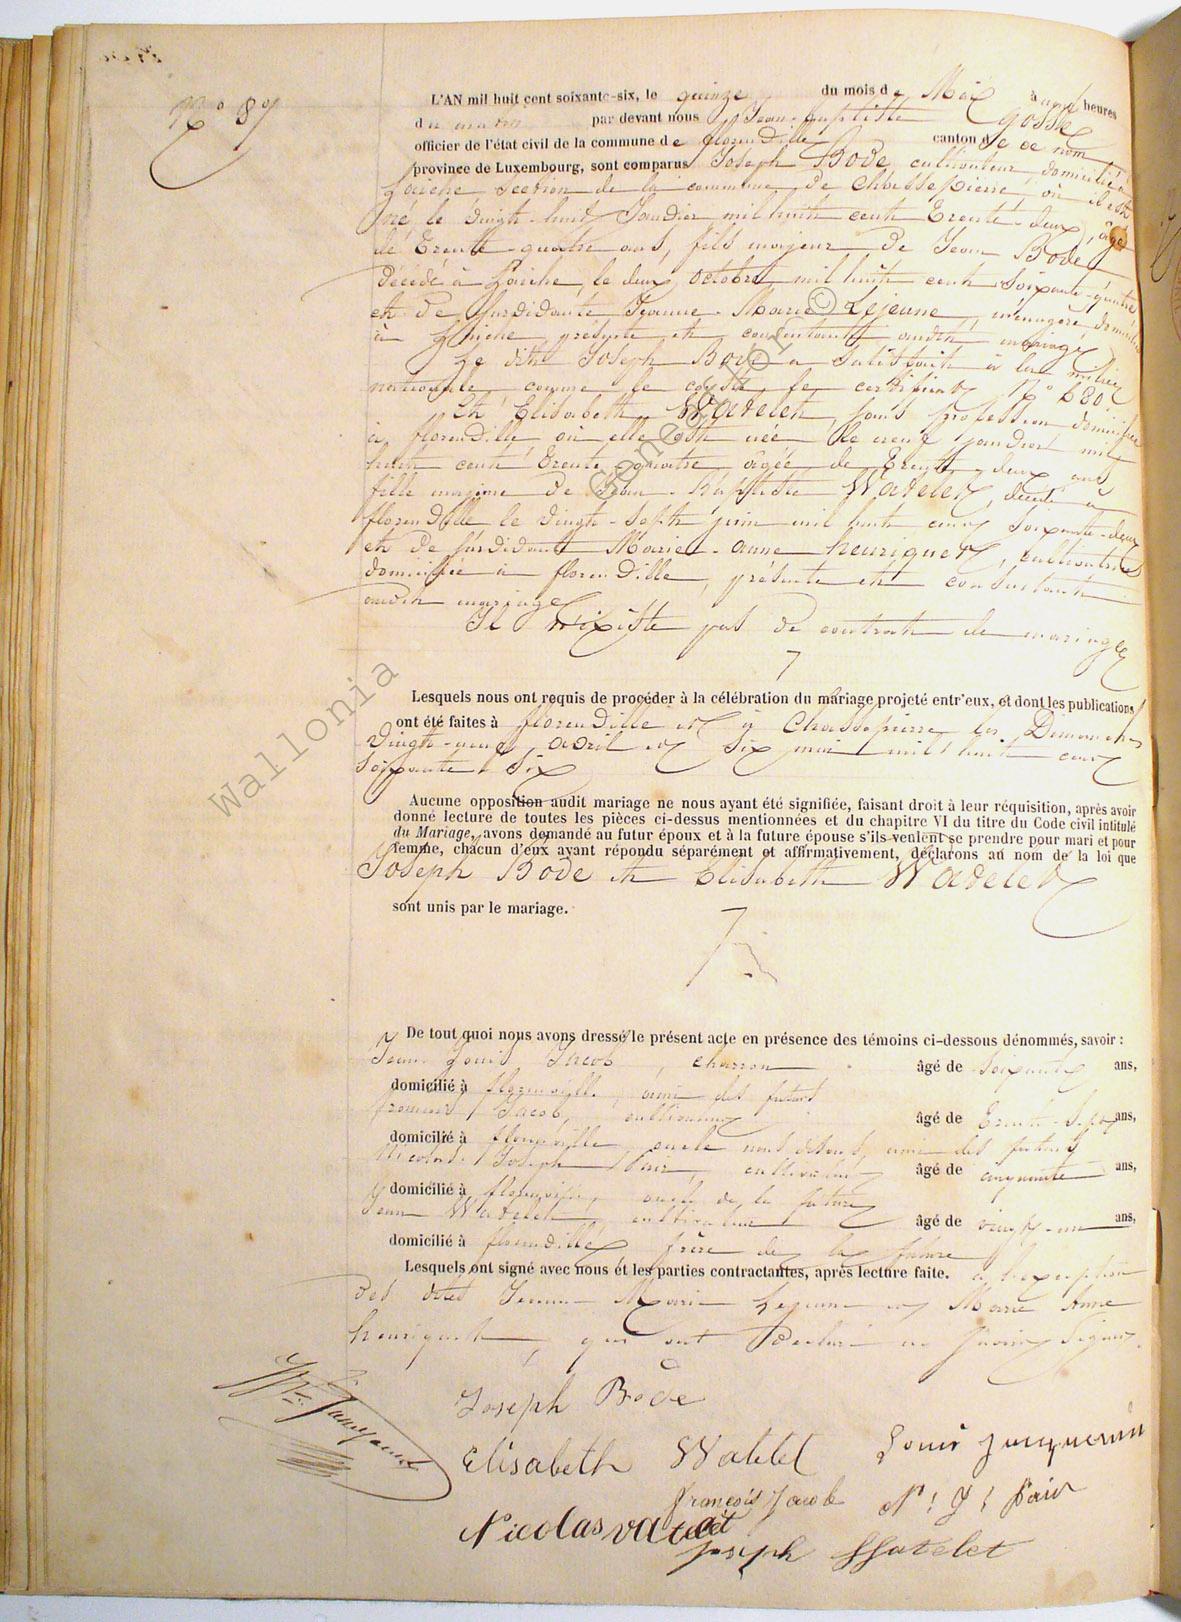 N° 87
L'AN mil huit cent soixante-six, le quinze du mois de Mai à heures
du par devant nous Jean-baptiste Gosse
officier de l'état civil de la commune de florenville canton de ce nom
province de Luxembourg, sont comparus Joseph Bodé cultivateur, domicilié à
Laiche section de la commune de Chassepierre, où il est
né le vingt-huit Janvier mil huit cent trente-deux, âgé
de trente-quatre ans, fils majeur de Jean Bodé
décédé à Laiche, le deux octobre mil huit cent soixante-quatre
et de survivante Jeanne-Marie Lejeune, ménagère domiciliée
à Laiche présente et consentante audit mariage
Le dit Joseph Bodé a satisfait à la milice
nationale, comme le coste le certificat N° 680
Et Elisabeth Watelet, sans profession domiciliée
à florenville où elle est née le neuf janvier mil
huit cent trente quatre âgée de trente-deux ans
fille majeure de Jean-baptiste Watelet, décédé à
florenville le vingt-sept juin mil huit cent soixante-deux
et de survivante Marie-anne henriquet, cultivatrice
domiciliée à florenville, présente et consentante
audit mariage
Il n'existe pas de contrat de mariage
Lesquels nous ont requis de procéder à la célébration du mariage projeté entr'eux, et dont les publications
ont été faites à florenville et à Chassepierre les Dimanches
vingt-neuf avril et six mai mil huit cent
soixante six
Aucune opposition audit mariage ne nous ayant été signifiée, faisant droit à leur réquisition, après avoir
donné lecture de toutes les pièces ci-dessus mentionnées et du chapitre VI du titre du Code civil intitulé
du Mariage, avons demandé au futur époux et à la future épouse s'ils veulent se prendre pour mari et pour
femme, chacun d'eux ayant répondu séparément et affirmativement, déclarons au nom de la loi que
Joseph Bodé et Elisabeth Watelet
sont unis par le mariage.
De tout quoi nous avons dressé le présent acte en présence des témoins ci-dessous dénommés, savoir :
Jean Louis Jacob, charron âgé de soixante ans,
domicilié à florenville, ami des futurs
françois Jacob, cultivateur âgé de trente-sept ans,
domicilié à florenville, ami des futurs
Nicolas Joseph Pair, cultivateur âgé de cinquante ans,
domicilié à florenville, oncle de la future
Jean Watelet, cultivateur âgé de vingt-un ans,
domicilié à florenville frère de la future
Lesquels ont signé avec nous et les parties contractantes, après lecture faite. à l'exception
des dites Jeanne Marie Lejeune et Marie Anne
henriquet, qui ont déclaré ne savoir signer.
Joseph Bode
Elisabeth Watelet
Louis
françois Jacob
N: J: Pair
Nicolas vatelet
joseph Watelet
Wallonia Geneanet ©